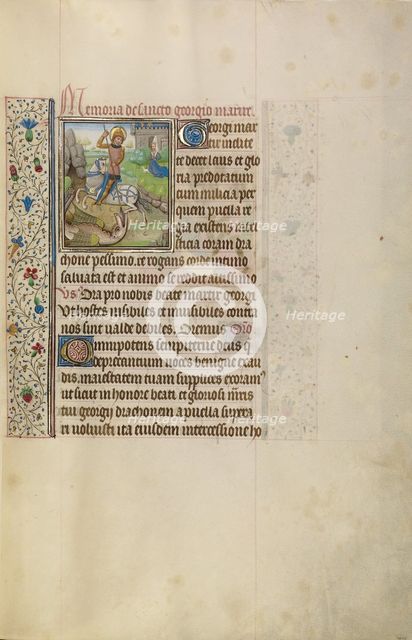 Memoria de sancto georgio martire.
Georgi mar
tir inclite
te decet laus et glo
ria predotatum
tum milicia per
quem puella re
gia existens in tri
sticia coram dra
chone pessimo. et rogans corde intimo
salvata est et animo se reddit altissimo
Vs Ora pro nobis beate martir georgi
Ut hostes visibiles et invisibiles contra
nos sint valde debiles. Oremus Oro
Omnipotens sempiterne deus q
deprecantium voces benigne exau
dis. maiestatem tuam supplices exoram
ut sicut in honore beati et gloriosi mris
tui georgij drachonem a puella supera
ri voluisti ita eiusdem intercessione ho
Heritage
Heritage
Heritage
Heritage